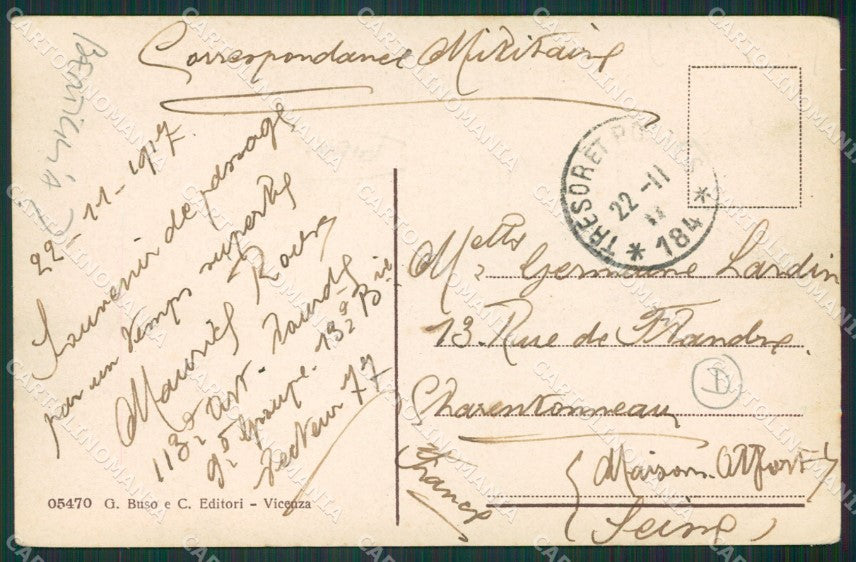 Correspondance Militaire
22-11-1917
Souvenir de passage
par un temps superbe
Maurice
113e Art. Lourde
9e Groupe. 132e Bie
Secteur 77
TRESOR ET POSTES
22-11
* 184 *
Melle Germaine Lardin
13. Rue de Flandre.
Charentonneau
(Maison-Alfort)
France
(Seine)
05470 G. Buso e C. Editori - Vicenza
CARTOLINOMANIA